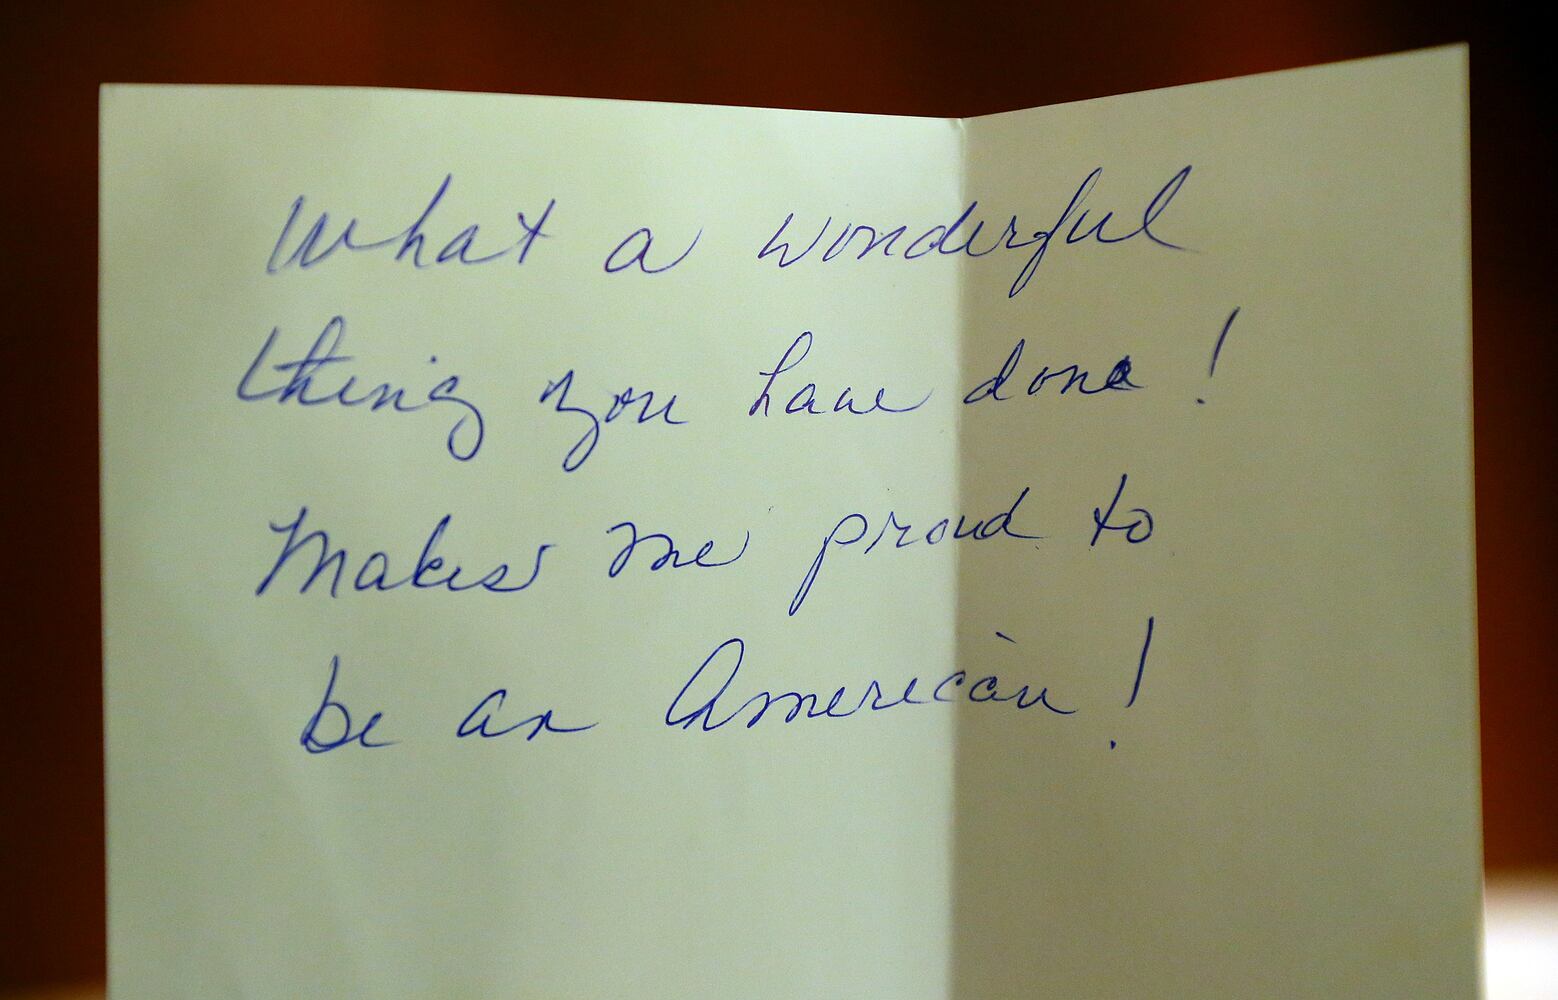 What a wonderful
thing you have done!
Makes me proud to
be an American!